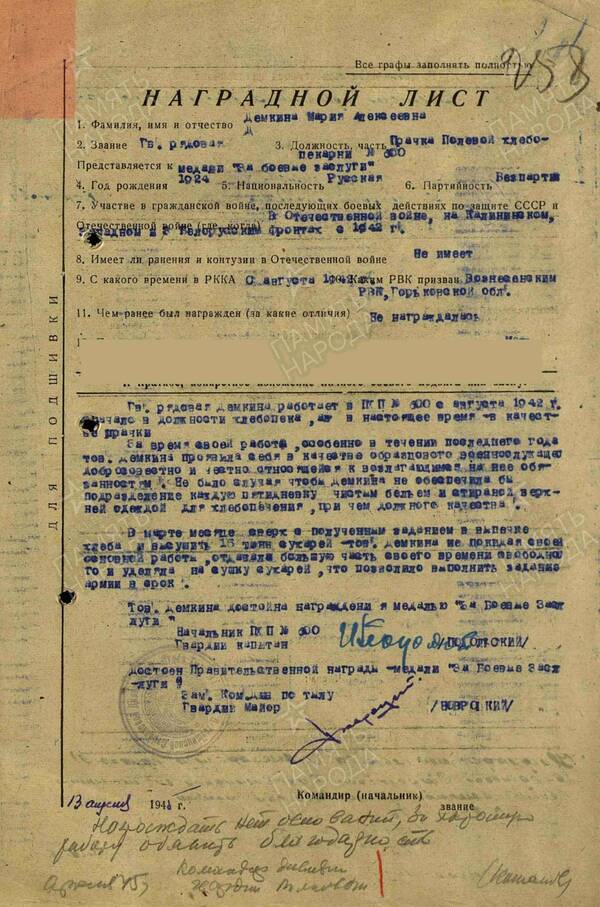 Все графы заполнять полностью
НАГРАДНОЙ ЛИСТ
1. Фамилия, имя и отчество Демкина Мария Алексеевна
2. Звание Гв. рядовая 3. Должность, часть Прачка Полевой хлебо-
пекарни № 600
Представляется к медали "За боевые заслуги"
4. Год рождения 1924 5. Национальность Русская 6. Партийность Безпартии
7. Участие в гражданской войне, последующих боевых действиях по защите СССР и
Отечественной войне (где, когда) В Отечественной войне, на Калининском,
Западном и Белорусским фронтах с 1942 г.
8. Имеет ли ранения и контузии в Отечественной войне Не имеет
9. С какого времени в РККА С августа 1942 Каким РВК призван Вознесенским
РВК, Горьковской обл.
11. Чем ранее был награжден (за какие отличия) Не награждалась
ДЛЯ ПОДШИВКИ
Гв. рядовая Демкина работает в ПХП № 600 с августа 1942 г.
сначало в должности хлебопека, а в настоящее время -в качест-
ве прачки
За время своей работы, особенно в течении последнего года
тов. Демкина проявила себя в качестве образцового военнослужащего
добросовестно и честно относящейся к возлагающимся на нее обя-
занностям. Не было случая чтобы Демкина не обеспечила бы
подразделение каждую пятидневку чистым бельем и стираной верх-
ней одеждой для хлебопечения, при чем должного качества.
В марте месяце сверх с полученным заданием в выпечке
хлеба и высушить 16 тонн сухарей -тов. Демкина не покидая своей
основной работы, отдавала большую часть своего времени свободно
го и уделяла на сушку сухарей, что позволило выполнить задание
армии в срок.
Тов. Демкина достойна награждения медалью "За Боевые Засл
луги"
Начальник ПХП № 600
Гвардии капитан /ПОДОЛЬСКИЙ/
Достоен Правительственной награды -медали "За Боевые Засл
-луги"
Зам. Ком. Див по тылу
Гвардии Майор
13 апреля 194 г.
Командир (начальник)
звание
Награждать нет оснований, за хорошую
работу объявить благодарность
Командир дивизии
гвардии полковник
ПАМЯТЬ НАРОДА